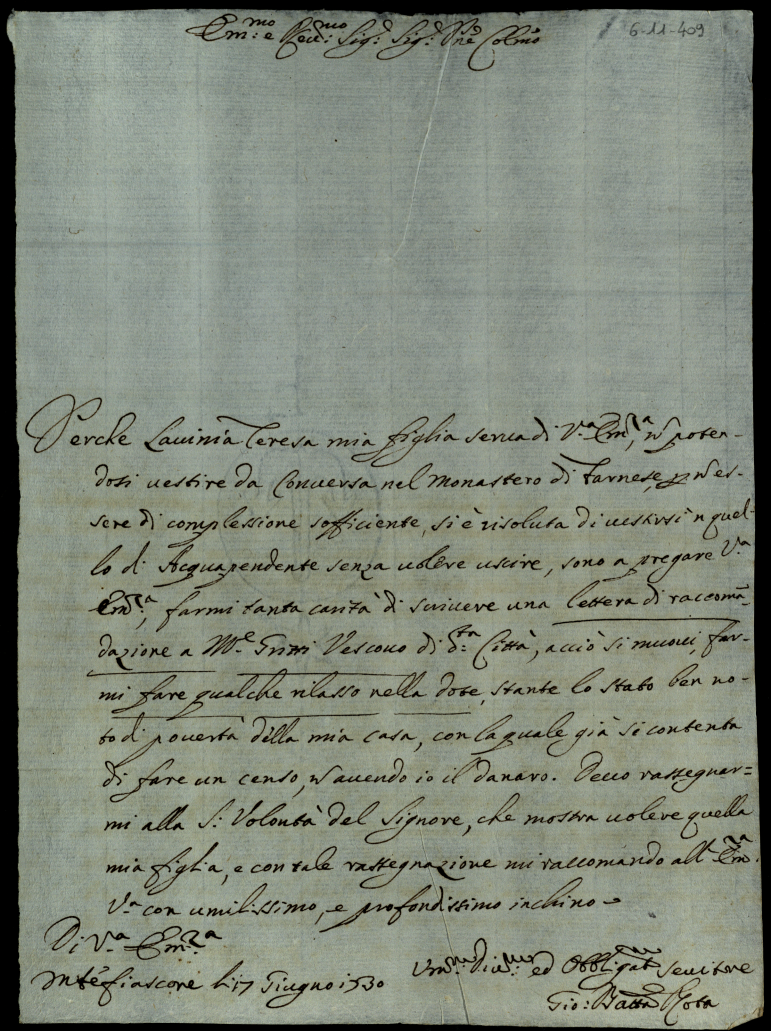 Em:mo e Reu:mo Sig: Sig: Pne Colmo
6-11-409
Perche Lauinia Teresa mia figlia serua di V.a Em.a, ñ poten-
dosi uestire da Conuersa nel Monastero di Farnese, p ñ es-
sere di complessione sofficiente, si è risoluta di uestirsi ñ quel-
lo di Acquapendente senza uolere uscire, sono a pregare V.a
Em.a, farmi tanta carità di scriuere una lettera di raccomã-
dazione a Mr. Gritti Vescouo di d.ta Città, acciò si muoui, far-
mi fare qualche rilasso nella dote, stante lo stato ben no-
to di pouertà della mia casa, con la quale già si contenta
di fare un censo, ñ auendo io il danaro. Deuo rassegnar=
mi alla S. Volontà del Signore, che mostra uolere quella
mia figlia, e con tale rassegnazione mi raccomando all' Em.a
V.a con umilissimo, e profondissimo inchino
Di V.a Em.za
Mntefiascone li 17 Giugno 1730
Vm:mo Diu:mo ed Obbligat.mo Seruitore
Gio: Batta Rota